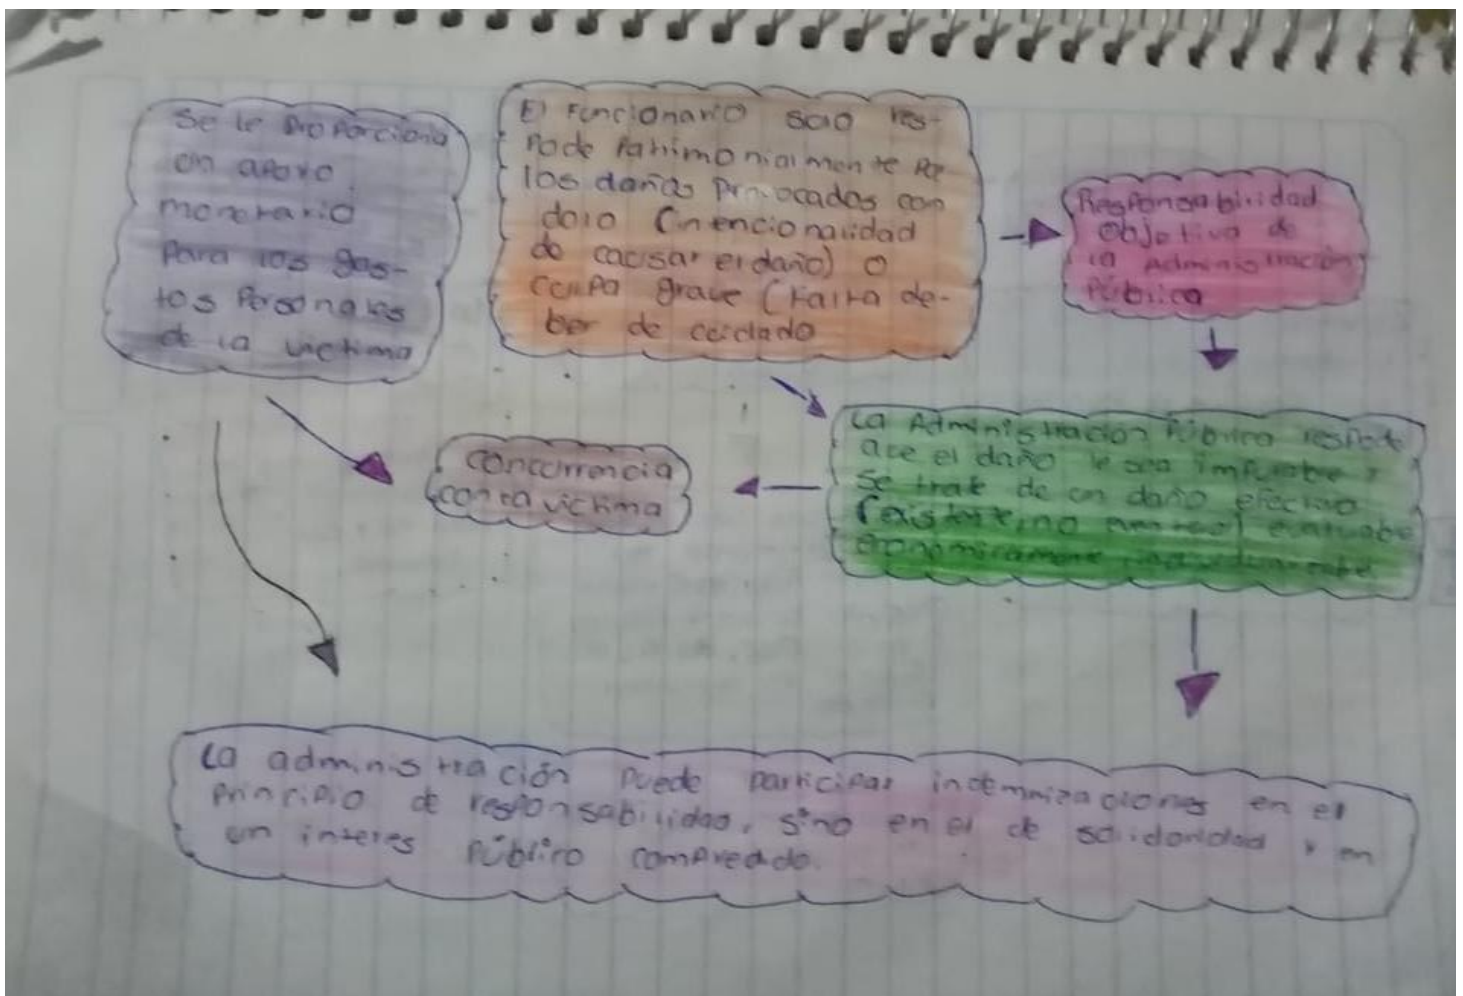 Se le proporciona
un apoyo
monetario
para los gas-
tos Personales
de la victima
El Funcionario solo res-
pode Patrimonialmente Por
los daños Provocados con
dolo (intencionalidad
de causar el daño) o
culpa grave (Falta de-
ber de cuidado
Responsabilidad
Objetiva de
la Administración
Pública
La Administración Pública respode
que el daño le sea imputable y
se trate de un daño efectivo
(existente, no eventual) evaluable
económicamente
concurrencia
con la victima
La administración puede participar indemnizaciones en el
principio de responsabilidad, sino en el de solidaridad y en
un interes público